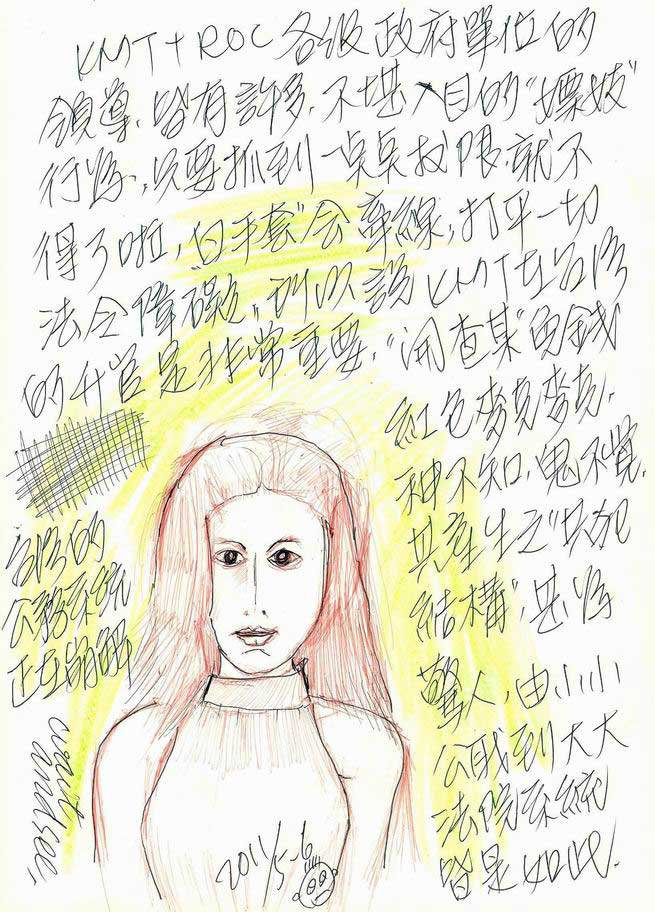 KMT+ROC各級政府單位的
領導，皆有許多，不堪入目的"嫖妓"
行為，只要抓到一点点权限，就不
得了啦，"白手套"会牵線，打平一切
法令障"礙"，所以說KMT在台灣
的升官是非常重要，"開查某"免錢
紅包变負变負，
神不知，鬼不覺，
共產生之"共犯
結構"，甚為
驚人，由小小
公職到大大
法院系統
皆是如此．
台灣的
公務系統
正在崩解
wait
and see,
2011/5-6